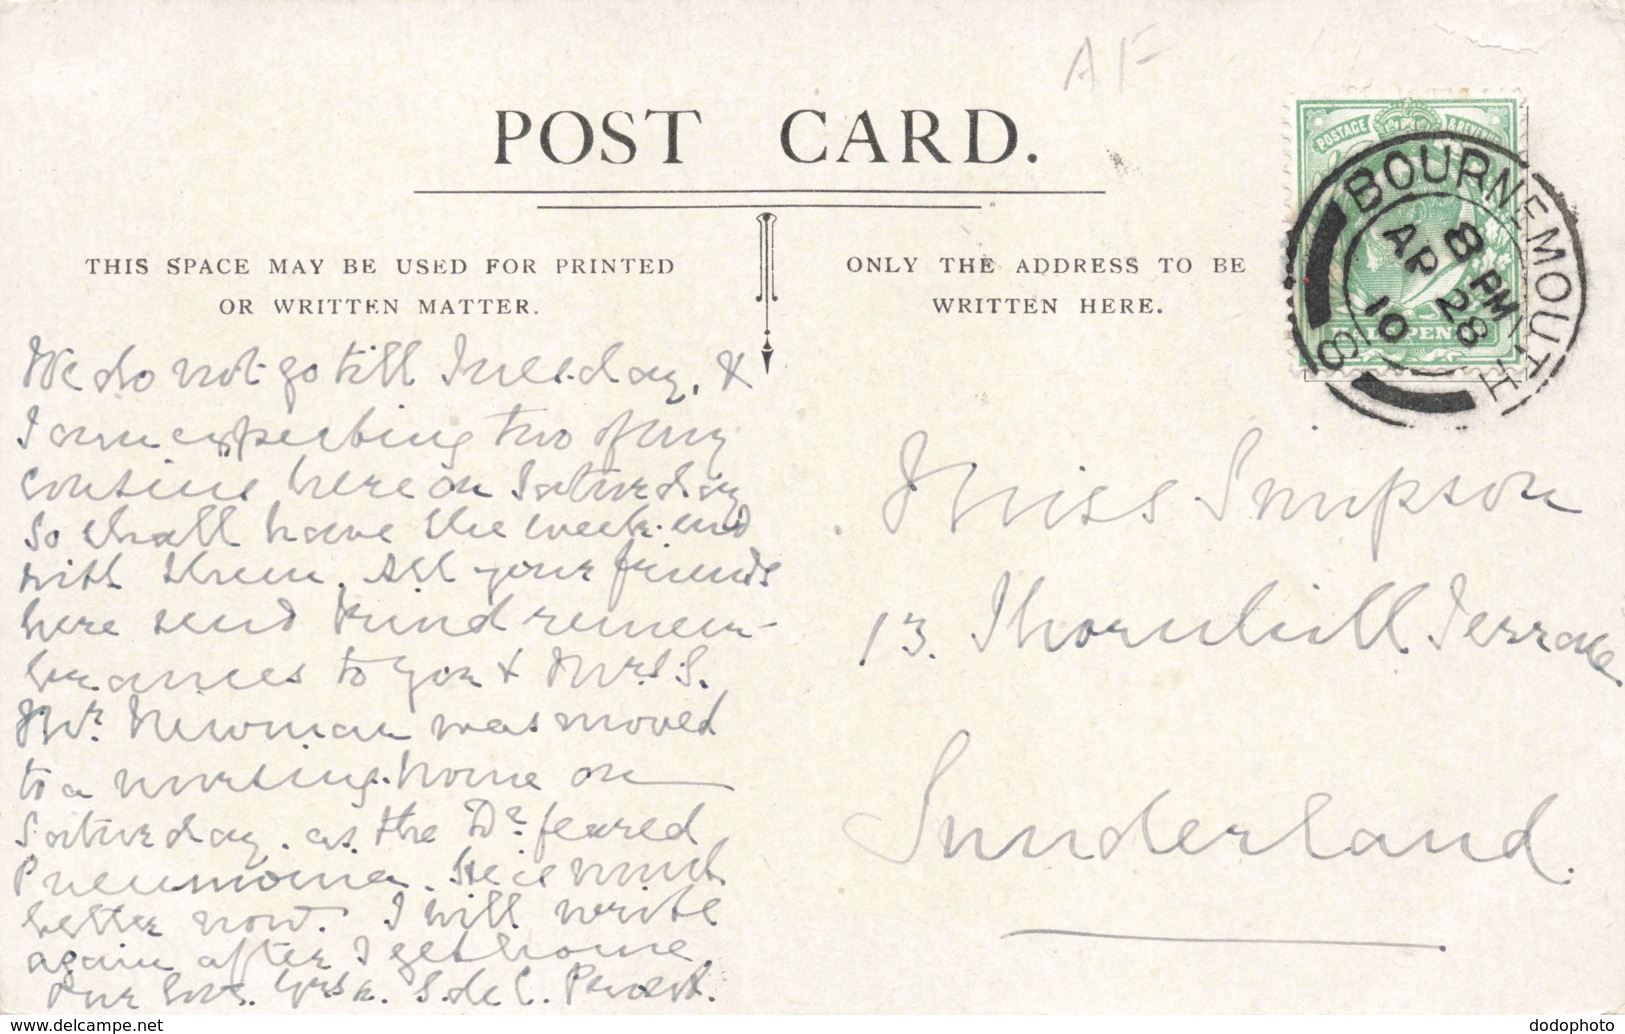 AF
POST CARD.
THIS SPACE MAY BE USED FOR PRINTED
OR WRITTEN MATTER.
ONLY THE ADDRESS TO BE
WRITTEN HERE.
POSTAGE & REVENUE
HALFPENNY
BOURNEMOUTH
8 PM
AP 28
10
8
We do not go till Tuesday, &
I am expecting two of my
cousins here on Saturday
so shall have the week-end
with them. All your friends
here send kind remem-
brances to you & Mrs. S.
Mr. Newman was moved
to a nursing-home on
Saturday. as. the Dr. feared
Pneumonia. He is much
better now. I will write
again after I get home
S. de C.
Miss Simpson
13. Thornhill Terrace
Sunderland.
delcampe.net
dodophoto